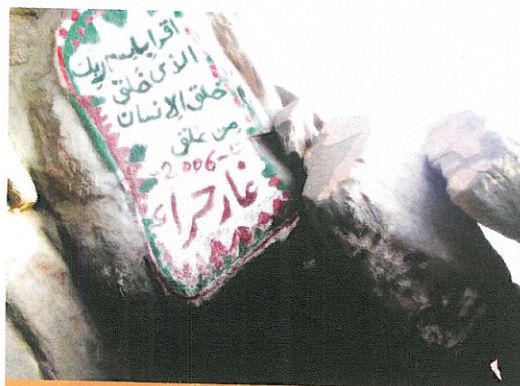 اقرا باسم ربك
الذي خلق
خلق الانسان
من علق
-2006-
غار حراء